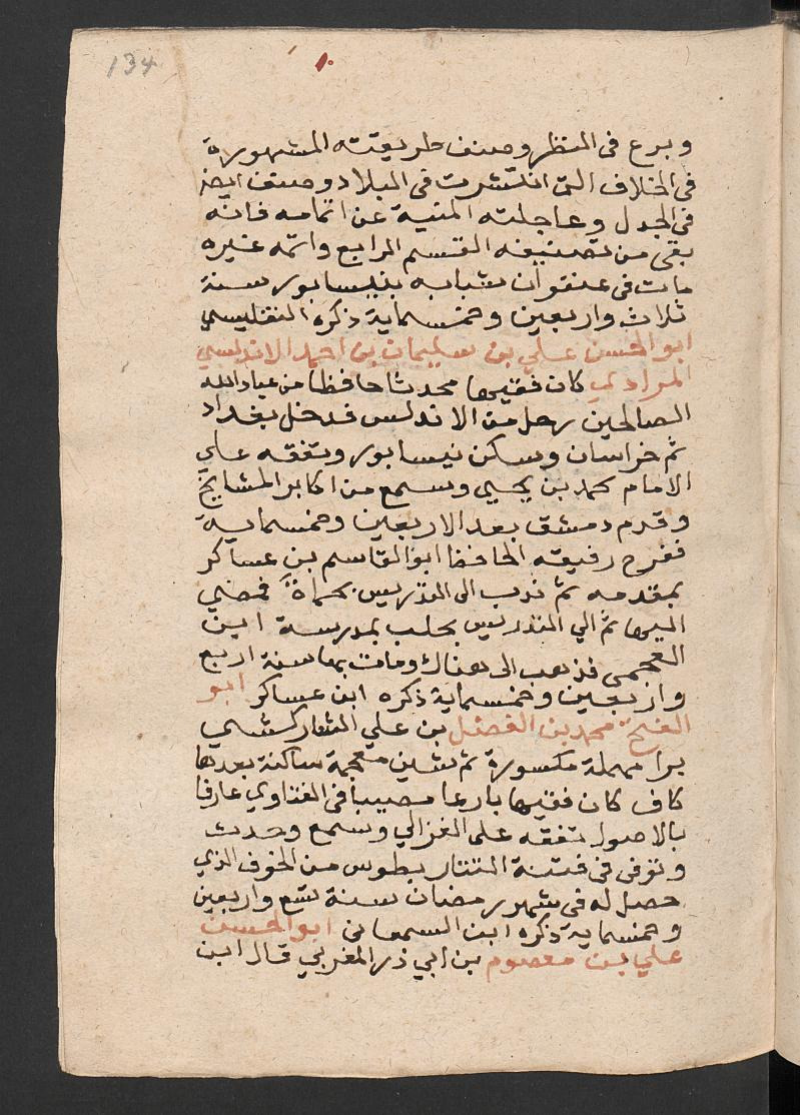 134
وبرع فى النظر وصنف طريقته المشهورة
فى الخلاف التى انتشرت فى البلاد وصنف ايضا
فى الجدل وعاجلته المنية عن اتمامه فانه
بقى من تصنيفه القسم الرابع واتمه غيره
مات فى عنفوان شبابه بنيسابور سنة
ثلاث واربعين وخمسماية ذكره التفليسي
ابو الحسن علي بن سليمان بن احمد الاندلسي
المرادي كان فقيها محدثا حافظا من عباد الله
الصالحين رحل من الاندلس فدخل بغداد
ثم خراسان وسكن نيسابور وتفقه علي
الامام محمد بن يحيي وسمع من اكابر المشايخ
وقدم دمشق بعد الاربعين وخمسماية
ففرح رفيقه الحافظ ابو القاسم بن عساكر
بمقدمه ثم ندب الى التدريس بحماة فمضي
اليها ثم الي التدريس بحلب بمدرسة ابن
العجمى فذهب الى هناك ومات بها سنة اربع
واربعين وخمسماية ذكره ابن عساكر ابو
الفتح محمد بن الفضل بن علي المارشكي
برا مهملة مكسورة ثم شين معجمة ساكنة بعدها
كاف كان فقيها بارعا مصيبا فى الفتاوي عارفا
بالاصول تفقه على الغزالي وسمع وحدث
وتوفى فى فتنة التتار بطوس من الخوف الذي
حصل له فى شهر رمضان سنة تسع واربعين
وخمسماية ذكره ابن السمعانى ابو الحسن
علي بن معصوم بن ابي ذر المغربي قال ابن